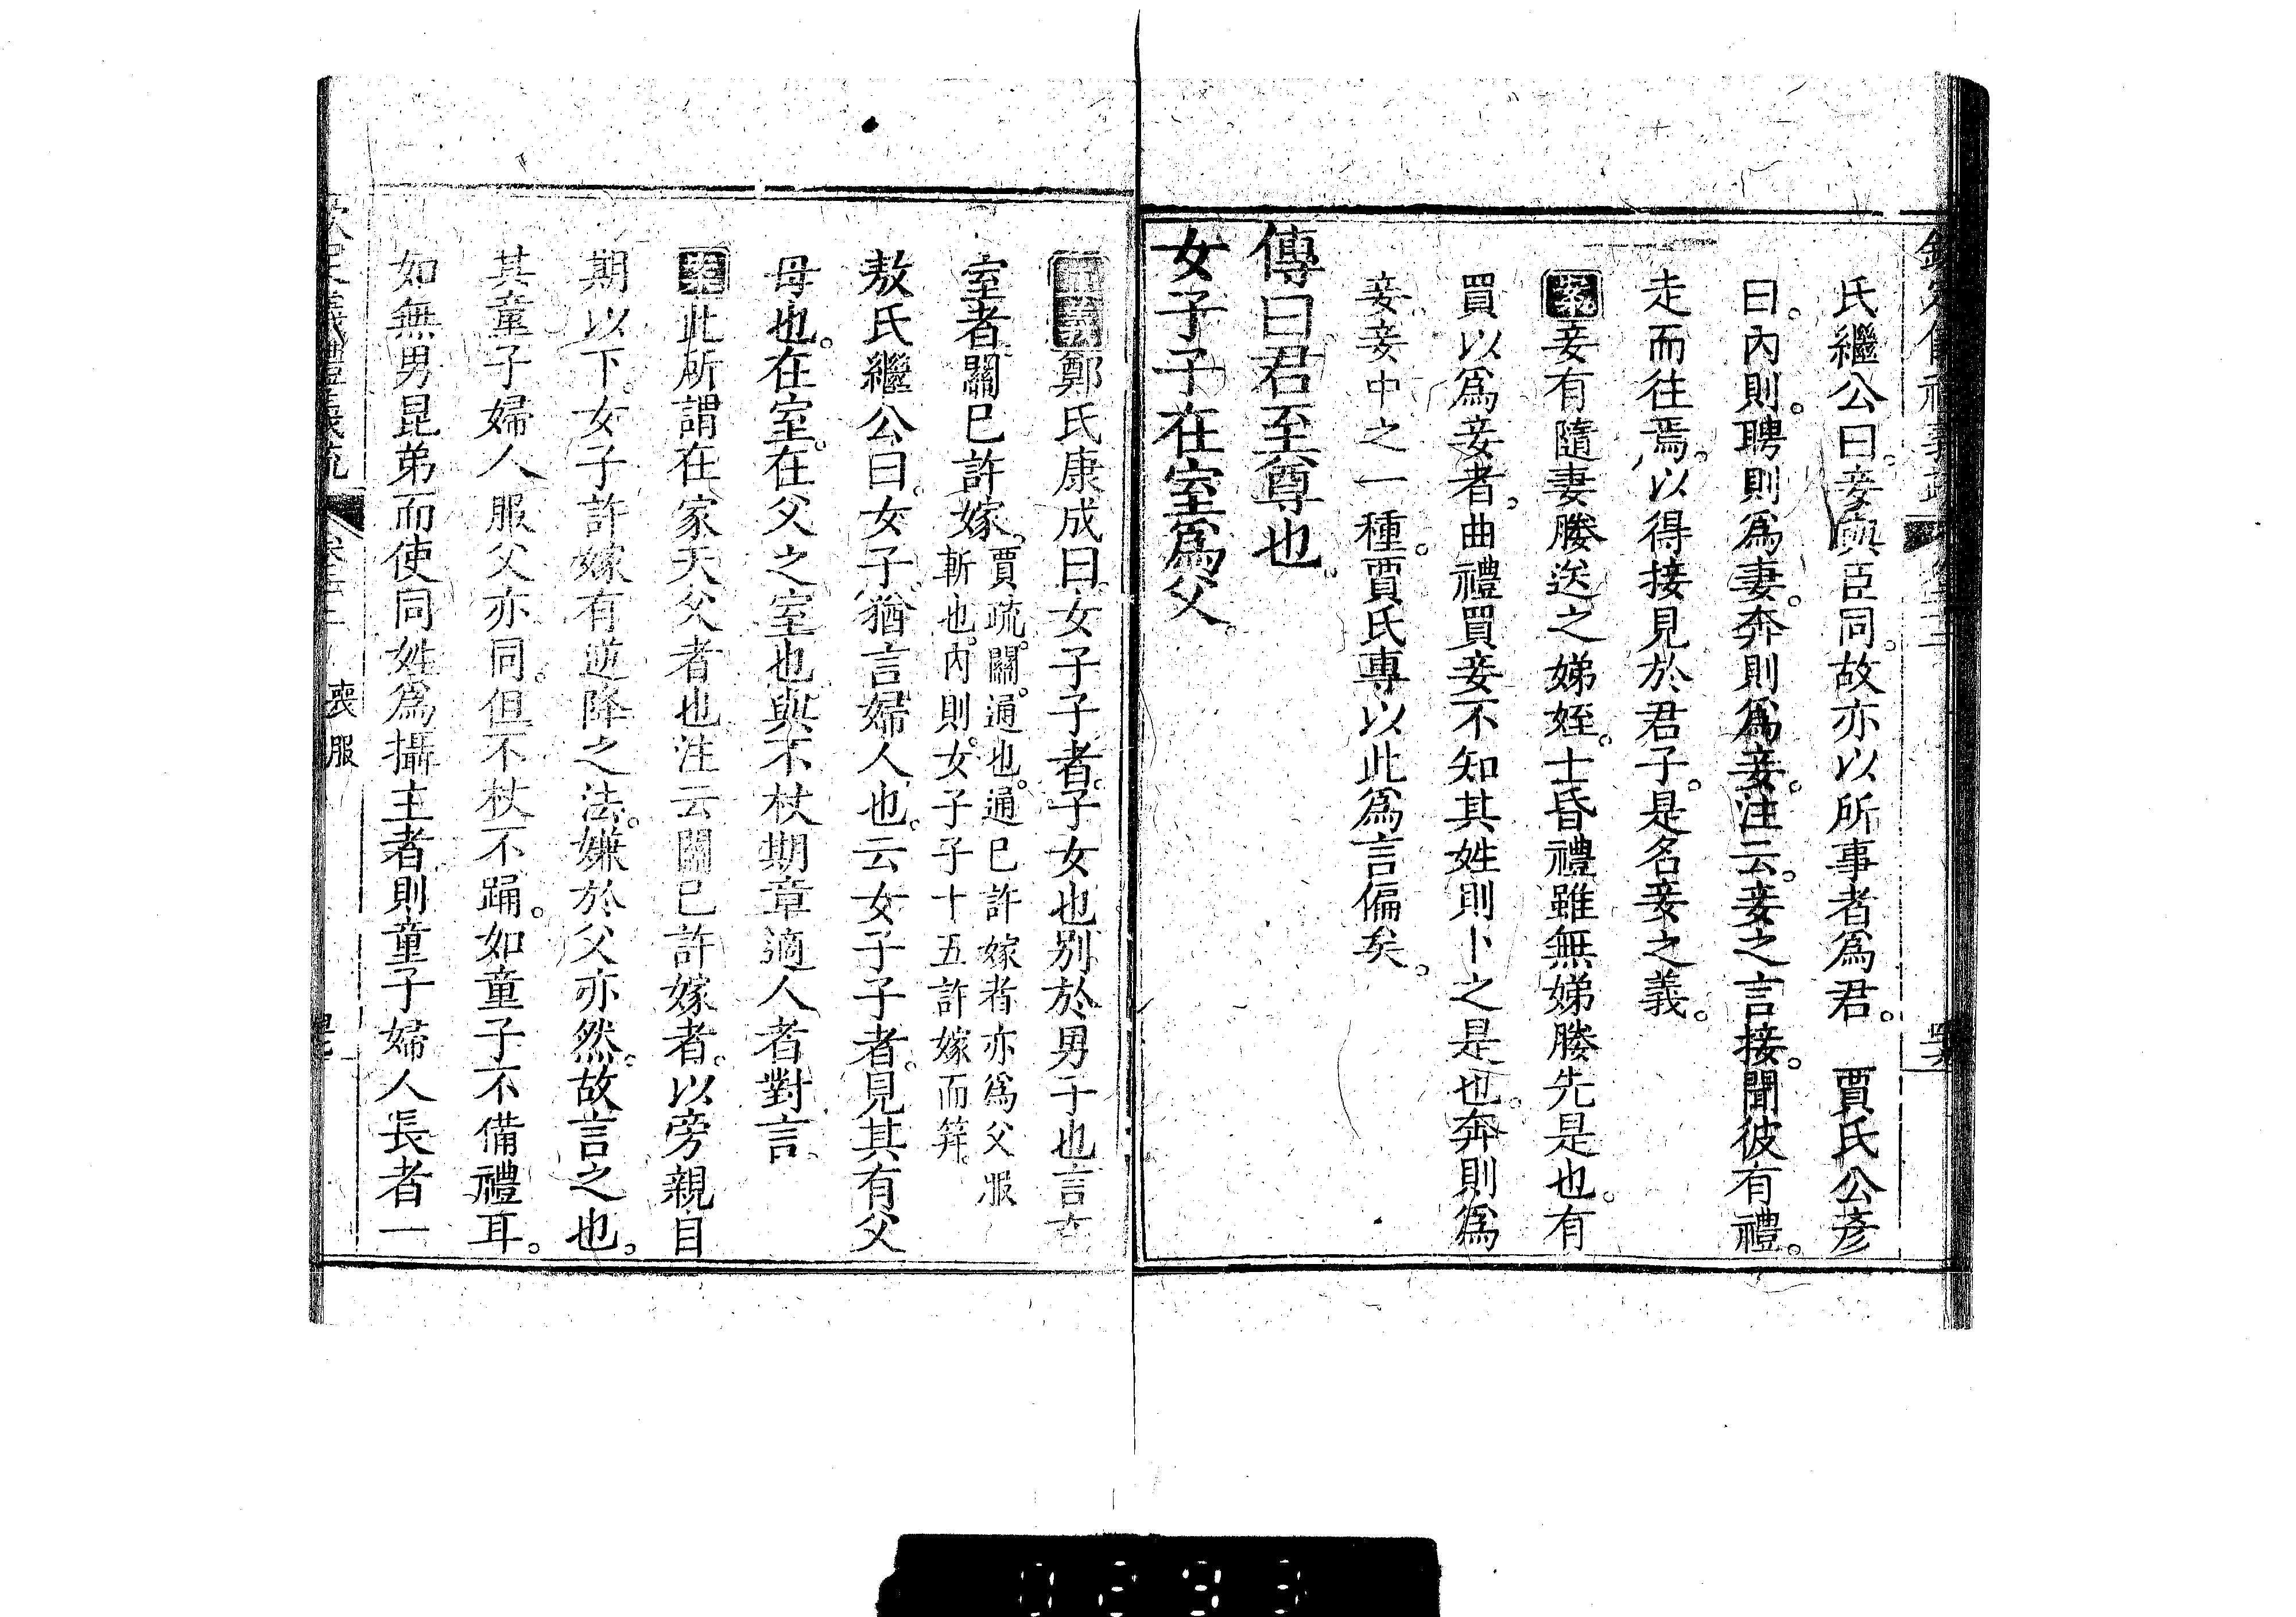 欽定儀禮義疏
氏繼公曰。妾與臣同。故亦以所事者爲君。　賈氏公彥
曰。內則。聘則爲妻。奔則爲妾。注云。妾之言接。聞彼有禮。
走而往焉。以得接見於君子。是名妾之義。
案妾有隨妻媵送之娣姪。士昏禮雖無娣媵先是也。有
買以爲妾者。曲禮買妾不知其姓則卜之是也。奔則爲
妾。妾中之一種。賈氏專以此爲言偏矣。
傳曰君至尊也。
女子子在室爲父。
正義鄭氏康成曰。女子子者。子女也別於男子也言在
室者。關已許嫁。
賈疏。關。通也。通已許嫁者亦爲父服
斬也。內則。女子子十五許嫁而笄。
敖氏繼公曰。女子。猶言婦人也。云女子子者。見其有父
母也。在室。在父之室也。與不杖期章適人者對言
案此所謂在家天父者也注云關已許嫁者。以旁親自
期以下。女子許嫁有逆降之法。嫌於父亦然。故言之也。
其童子婦人服父亦同。但不杖不踊。如童子不備禮耳。
如無男昆弟而使同姓爲攝主者。則童子婦人長者一
欽定儀禮義疏
喪服
0293